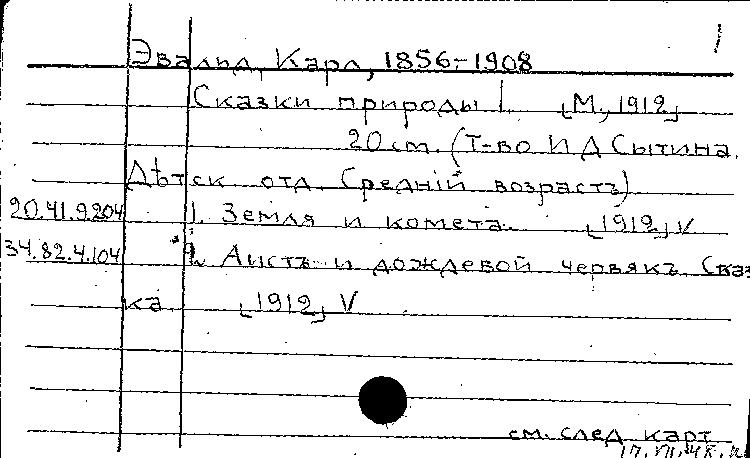 1
Эвальд, Карл, 1856-1908
Сказки природы 1. [М, 1912]
20 cm. (Т-во И Д Сытина.
Дѣтск отд. Среднiй возрастъ)
20.41.9.204 1. Земля и комета. [1912] V
34.82.4.104 Аистъ и дождевой червякъ Сказ
ка [1912] V
см. след карт